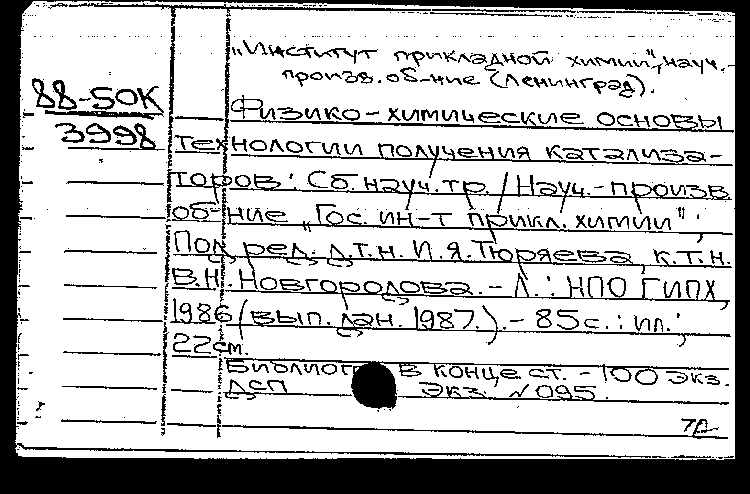 „Институт прикладной химии", науч.-
произв. об-ние (Ленинград).
88-50К
3998
Физико-химические основы
технологии получения катализа-
торов : Сб. науч. тр. / Науч.-произв
об-ние „Гос. ин-т прикл. химии" ;
Под ред. д.т.н. И.Я. Тюряева, к.т.н.
В.Н. Новгородова. - Л. : НПО ГИПХ,
1986 (вып. дан. 1987.). - 85 с. : ил. ;
22 см.
Библиогр в конце ст. - 100 экз.
ДСП экз. № 095.